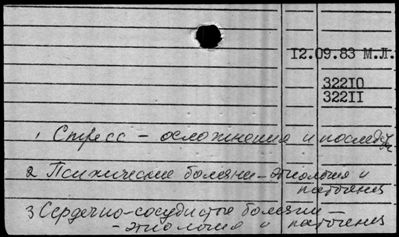 12.09.83 М.Л.
32210
32211
1 Стресс – осложнения и последст.
2 Психические болезни – этиология и
патогенез
3 Сердечно-сосудистые болезни –
– этиология и патогенез